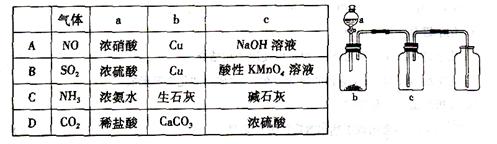 气体 a b c
A NO 浓硝酸 Cu NaOH 溶液
B SO₂ 浓硫酸 Cu 酸性 KMnO₄ 溶液
C NH₃ 浓氨水 生石灰 碱石灰
D CO₂ 稀盐酸 CaCO₃ 浓硫酸
a
b c